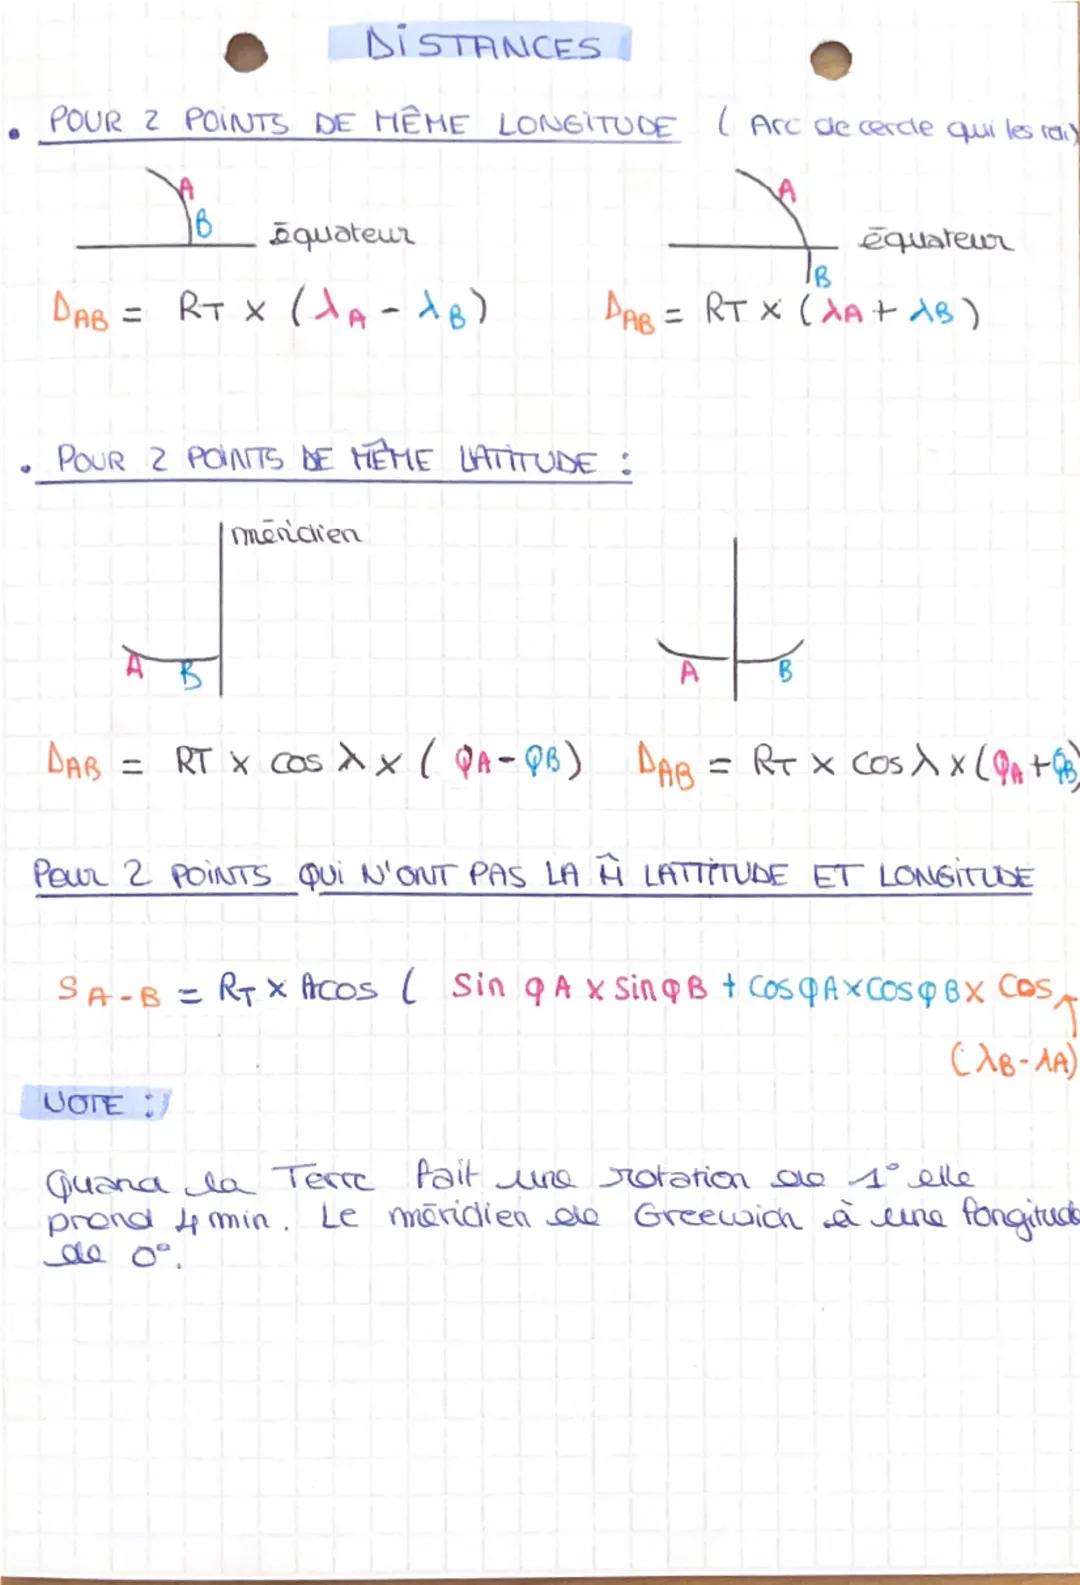 DISTANCES
• POUR 2 POINTS DE MÊME LONGITUDE ( Arc de cercle qui les
A
B
équateur
A
équateur
B
DAB = RT x (λA - λB)
DAB = RT x (λA + λB)
• POUR 2 POINTS DE MÊME LATITUDE :
méridien
A B
A B
DAB = RT x cos λ x ( φA - φB)
DAB = RT x cos λ x (φA + φB)
Pour 2 POINTS QUI N'ONT PAS LA M̂ LATTITUDE ET LONGITUDE
S A-B = RT x Acos ( Sin φA x Sin φB + Cos φA x Cos φB x Cos
(λB - λA)
NOTE :
Quand la Terre fait une rotation de 1° elle
prend 4 min. Le méridien de Greewich à une longitude
de 0°.